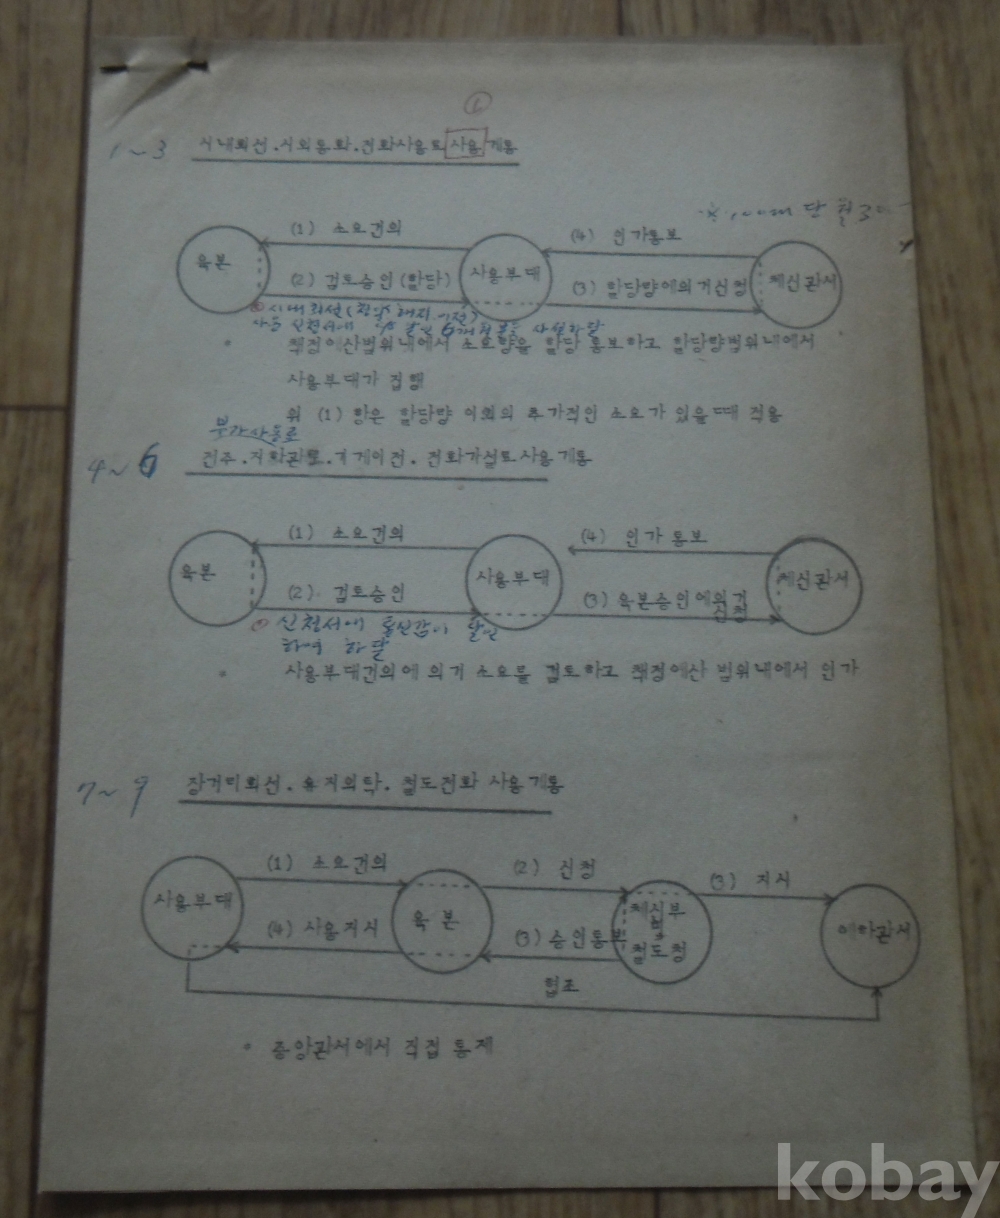 1
1~3 시내회선.시외통화.전화사용료 사용계통
당
(1) 소요건의
(4) 인가통보
육본
사용부대
체신관서
(2) 검토승인(할당)
(3) 할당량에의거신청
시내회선(청약, 해지, 이전)
신청서에
책정예산범위내에서 소요량을 할당 통보하고 할당량범위내에서
사용부대가 집행
위 (1) 항은 할당량 이외의 추가적인 소요가 있을때 적용
부가사용료
4~6 전주.지하관로.기계이전.전화가설료사용계통
(1) 소요건의
(4) 인가통보
육본
사용부대
체신관서
(2) 검토승인
(3) 육본승인에의거
신청
신청서에 통신감이 날인
하여 하달
사용부대건의에 의거 소요를 검토하고 책정예산 범위내에서 인가
7~9 장거리회선.유지위탁.철도전화 사용계통
(1) 소요건의
(2) 신청
(3) 지시
사용부대
육본
체신부
철도청
이하관서
(4) 사용지시
(3) 승인통보
협조
중앙관서에서 직접 통제
kobay